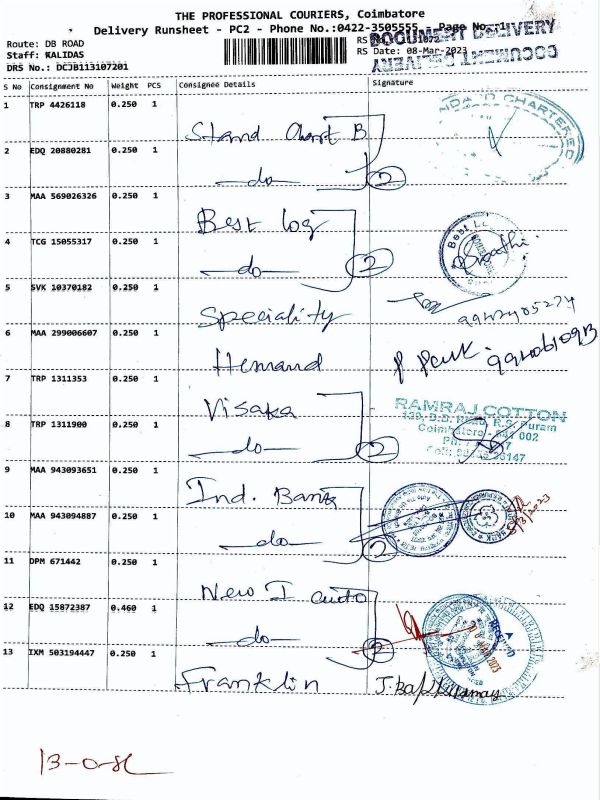 THE PROFESSIONAL COURIERS, Coimbatore
Delivery Runsheet - PC2 - Phone No.:0422-3505555 - Page No. 1
DOCUMENT DELIVERY
Route: DB ROAD
Staff: KALIDAS
RS Date: 08-Mar-2023
DOCUMENT DELIVERY
DRS No.: DCJB113107201
S No Consignment No Weight PCS Consignee Details Signature
1 TRP 4426118 0.250 1 Stand Chart B
2 EDQ 20880281 0.250 1 -do- 2
3 MAA 569026326 0.250 1 Best log
4 TCG 15055317 0.250 1 -do- 2
5 SVK 10370182 0.250 1 Speciality
6 MAA 299006607 0.250 1 Hemand
7 TRP 1311353 0.250 1 Visaka
RAMRAJ COTTON
8 TRP 1311900 0.250 1 -do- 2
139, D.B. Road, R.S. Puram
Coimbatore - 641 002
9 MAA 943093651 0.250 1 Ind. Bank
10 MAA 943094887 0.250 1 -do- 2
11 DPM 671442 0.250 1 New I auto
12 EDQ 15872387 0.460 1 -do- 2
13 IXM 503194447 0.250 1 Franklin
13-0-sl